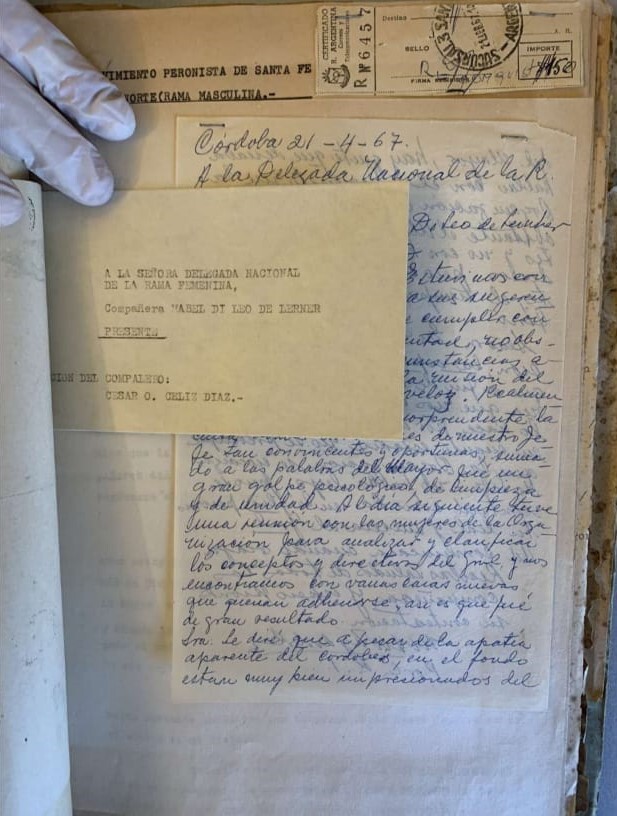 VIMIENTO PERONISTA DE SANTA FE
NORTE(RAMA MASCULINA.-
CERTIFICADO
R. ARGENTINA
Correos y
Telecomunicaciones
R Nº 6457
Destino
SELLO
IMPORTE
SUCURSAL 3
Córdoba 21-4-67.
A la Delegada Nacional de la R.
Di Leo de Lerner
A LA SEÑORA DELEGADA NACIONAL
DE LA RAMA FEMENINA,
Compañera MABEL DI LEO DE LERNER
PRESENTE
CION DEL COMPAÑERO:
CESAR O. CELIZ DIAZ.-
con
a sus sugeren
cumplir con
noobs-
cunstancias a-
la misión del
veloz. Realmen
sorprendente la
es de nuestro Je-
fe tan convincentes y oportunas, suma-
do a las palabras del Mayor que un
gran golpe psicológico, de limpieza
y de unidad. Al día siguiente tuve
una reunión con las mujeres de la Orga-
nización para analizar y clarificar
los conceptos y directivas del Gral y nos
encontramos con varias caras nuevas
que querían adherirse, así es que fué
de gran resultado.
Sra. Le diré que a pesar de la apatía
aparente del cordobés, en el fondo
estan muy bien impresionados del